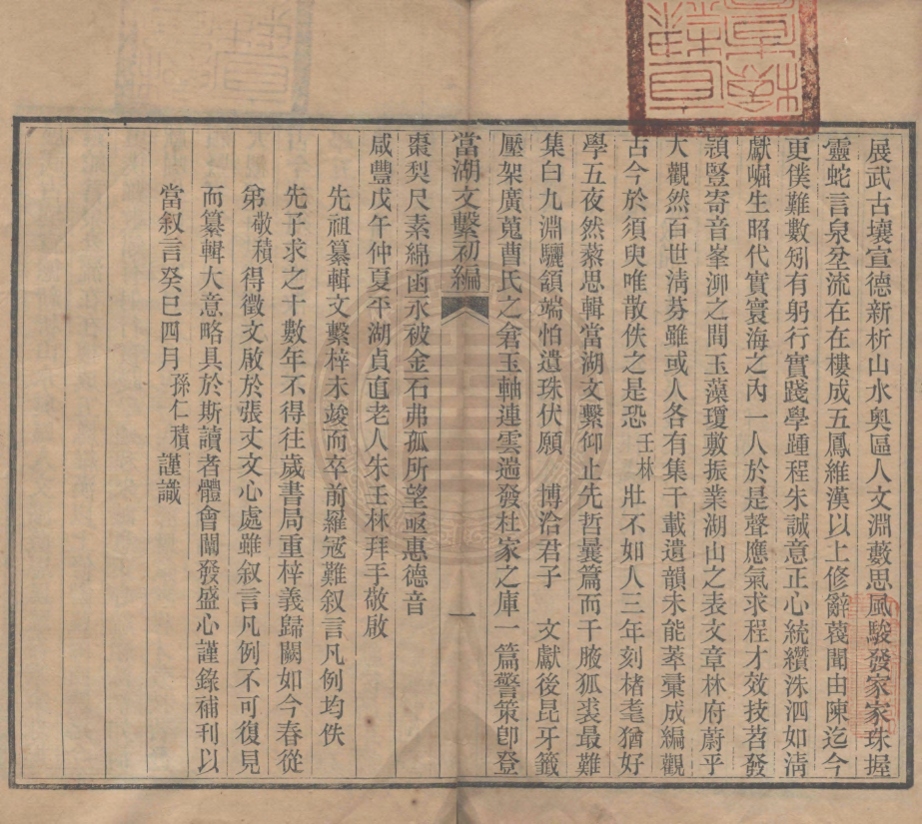 展武古壤宣德新析山水奧區人文淵藪思風駿發家家珠握
靈蛇言泉坌流在在樓成五鳳維漢以上修辭薎聞由陳迄今
更僕難數矧有躬行實踐學踵程朱誠意正心統纘洙泗如淸
獻崛生昭代實寰海之內一人於是聲應氣求程才效技苕發
穎豎寄音峯泖之間玉藻瓊敷振業湖山之表文章林府蔚乎
大觀然百世淸芬雖或人各有集千載遺韻未能萃彙成編觀
古今於須臾唯散佚之是恐壬林壯不如人三年刻楮耄猶好
學五夜然藜思輯當湖文繫仰止先哲曩篇而千腋狐裘最難
集白九淵驪頷端怕遺珠伏願　博洽君子　文獻後昆牙籤
壓架廣蒐曹氏之倉玉軸連雲遄發杜家之庫一篇警策卽登
當湖文繫初編
一
棗梨尺素綿函永被金石弗孤所望亟惠德音
咸豐戊午仲夏平湖貞直老人朱壬林拜手敬啟
先祖纂輯文繫梓未竣而卒前羅冦難叙言凡例均佚
先子求之十數年不得往歲書局重梓義歸闕如今春從
弟敬積得徵文啟於張丈文心處雖叙言凡例不可復見
而纂輯大意略具於斯讀者體會闡發盛心謹錄補刊以
當叙言癸巳四月孫仁積謹識